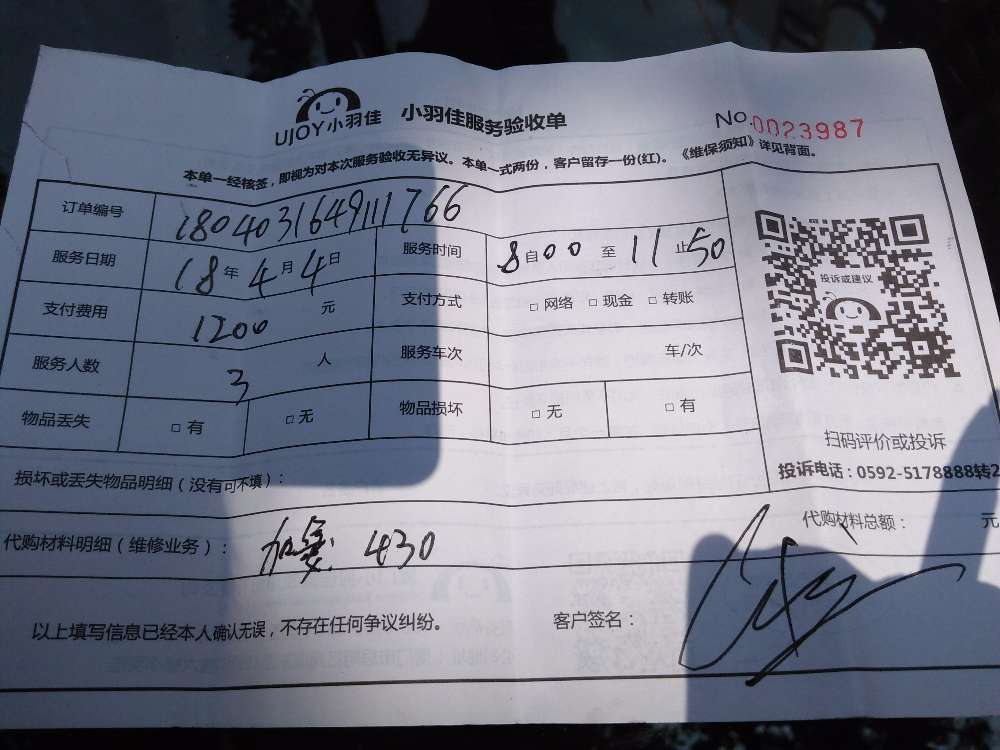 UJOY小羽佳 小羽佳服务验收单 No.0023987
本单一经核签，即视为对本次服务验收无异议。本单一式两份，客户留存一份(红)。《维保须知》详见背面。
订单编号 1804031649111766
服务日期 18年4月4日 服务时间 8自00至11止50
支付费用 1200元 支付方式 □网络 □现金 □转账
投诉或建议
服务人数 3人 服务车次 车/次
物品丢失 □有 □无 物品损坏 □无 □有
扫码评价或投诉
投诉电话：0592-5178888转2
损坏或丢失物品明细（没有可不填）：
代购材料明细（维修业务）： 430 代购材料总额： 元
以上填写信息已经本人确认无误，不存在任何争议纠纷。 客户签名：